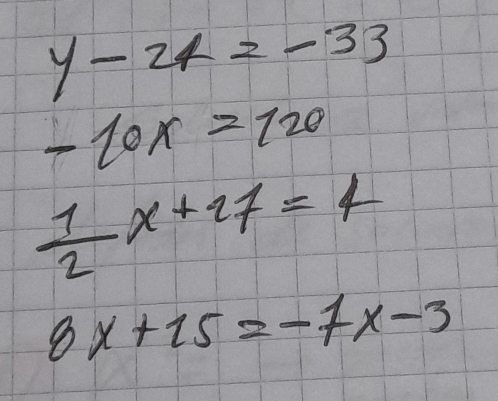 y - 24 = - 33
- 10x = 120
1/2 x + 27 = 4
8x + 15 = - 7x - 3